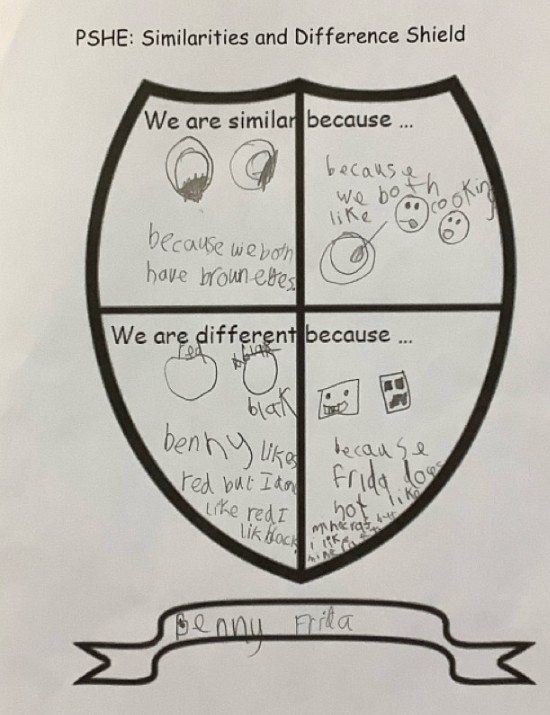 PSHE: Similarities and Difference Shield
We are similar because ...
because we both
have broun eyes
because
we both
like cooking
We are different because ...
red
blak
benny likes
red but I don
like red I
lik black
because
Frida does
not like
minecraft but
i like
Benny Frida